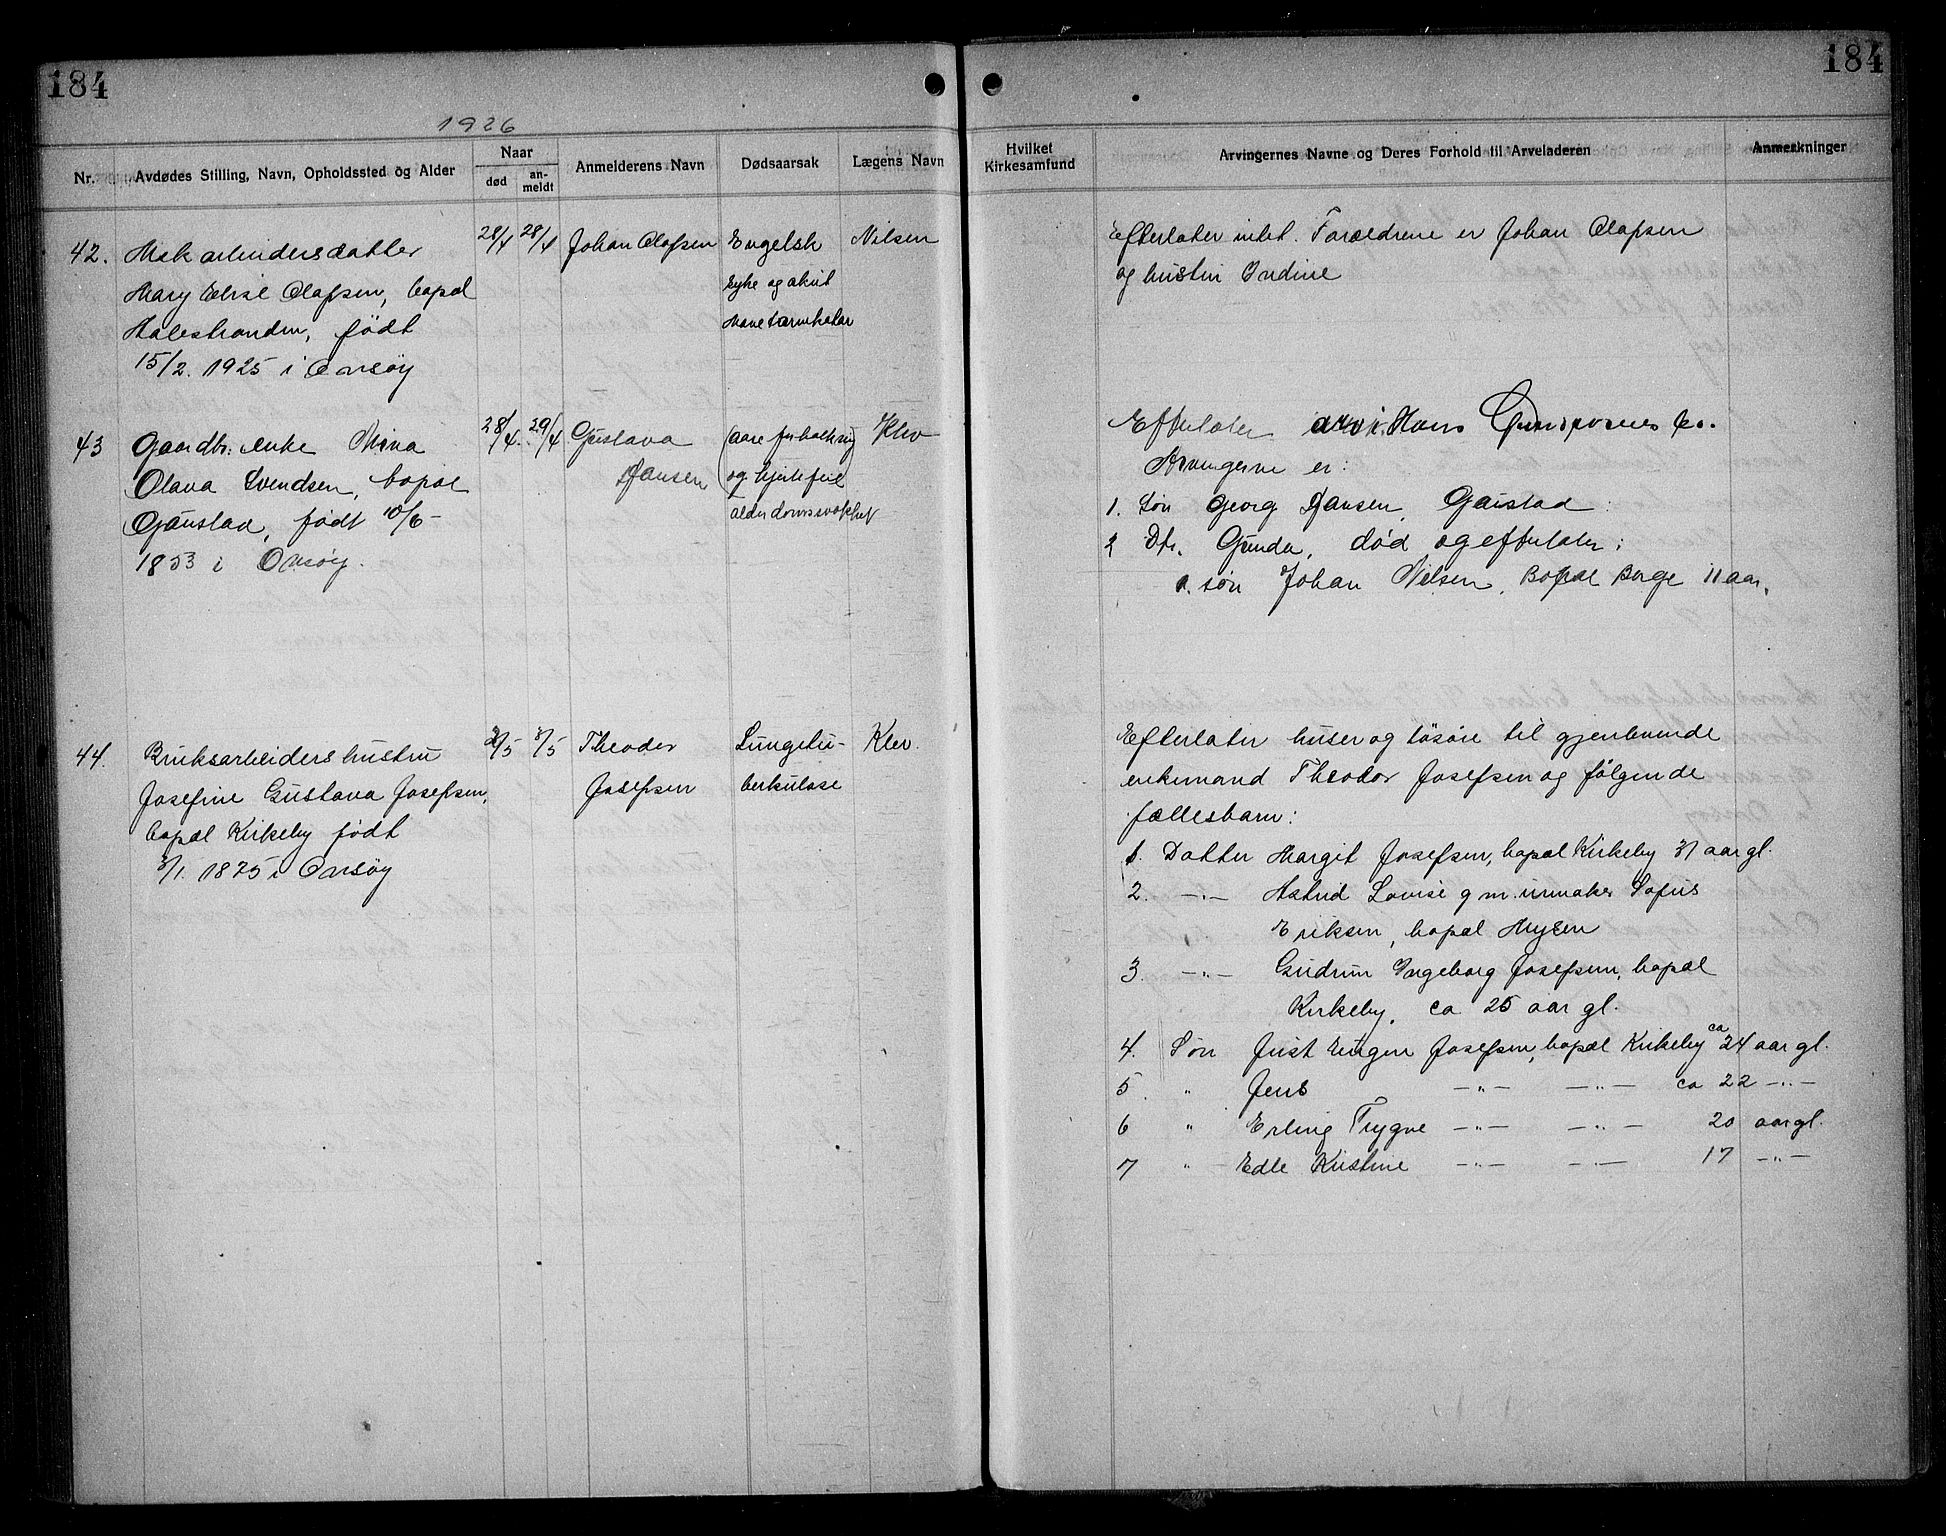 184
184
1926
Nr.
Avdødes Stilling, Navn, Opholdssted og Alder
Naar
død
an-
meldt
Anmelderens Navn
Dødsaarsak
Lægens Navn
Hvilket
Kirkesamfund
Arvingernes Navne og Deres Forhold til Arveladeren
Anmerkninger
42.
Mek arbeidersdatter
Mary Elise Olafsen, bopæl
født
15/2. 1925 i Onsøy
28/4
28/4
Johan Olafsen
Engelsk
syke og akut
Mavetarmkatar
Nilsen
Efterlater intet. Forældrene er Johan Olafsen
og hustru Indine
43
Gaardbr. enke Mina
Olava Svendsen, bopæl
Gaustad, født 10/6-
1853 i Onsøy.
28/4.
29/4
Gustava
Hansen
(aareforkalkning
og hjertefeil)
alderdomssvakhet
Klev
Efterlater arv i Hans
Arvingerne er:
1. Søn Georg Hansen, Gaustad
2 Dtr. Gunda, død og efterlater:
a. søn Johan Nilsen, Bopæl Borge 11 aar.
44.
Bruksarbeiders hustru
Josefine Gustava Josefsen,
bopæl Kirkeby født
3/1. 1875 i Onsøy
2/5
3/5
Theodor
Josefsen
Lungetu-
berkulose
Klev.
Efterlater huser og løsøre til gjenlevende
enkemand Theodor Josefsen og følgende
fællesbarn:
1. Datter Margit Josefsen, bopæl Kirkeby 31 aar gl.
2. -"- Astrid Lovise g m. urmaker Sofus
Eriksen, bopæl Mysen
3. -"- Gudrun Ingeborg Josefsen, bopæl
Kirkeby, ca 25 aar gl.
4. Søn Just Eugen Josefsen, bopæl Kirkeby ca 24 aar gl.
5. " Jens -"- -"- ca 22 -"-
6 " Erling Trygve -"- -"- 20 aar gl.
7 " Edle Kristine -"- -"- 17 -"-